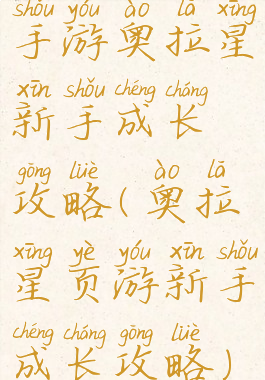 shǒu yóu ào lā xīng
手游奥拉星
xīn shǒu chéng cháng
新手成长
gōng lüè ào lā
攻略(奥拉
xīng yè yóu xīn shǒu
星页游新手
chéng cháng gōng lüè
成长攻略)